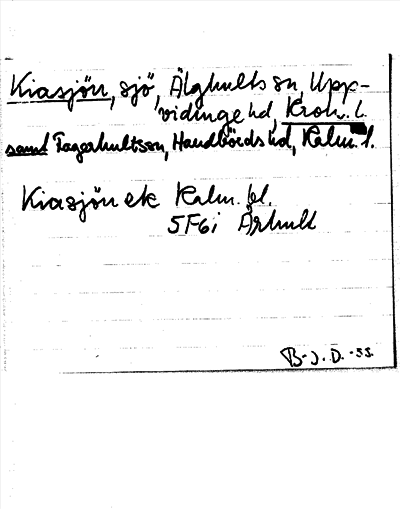 Kiasjön, sjö, Älghults sn, Upp-
vidinge hd, Kron. l.
samt Fagerhultssn, Handbörds hd, Kalm. l.
Kiasjön ek Kalm. bl.
5F6i Ärhult
B-J.D.-55.